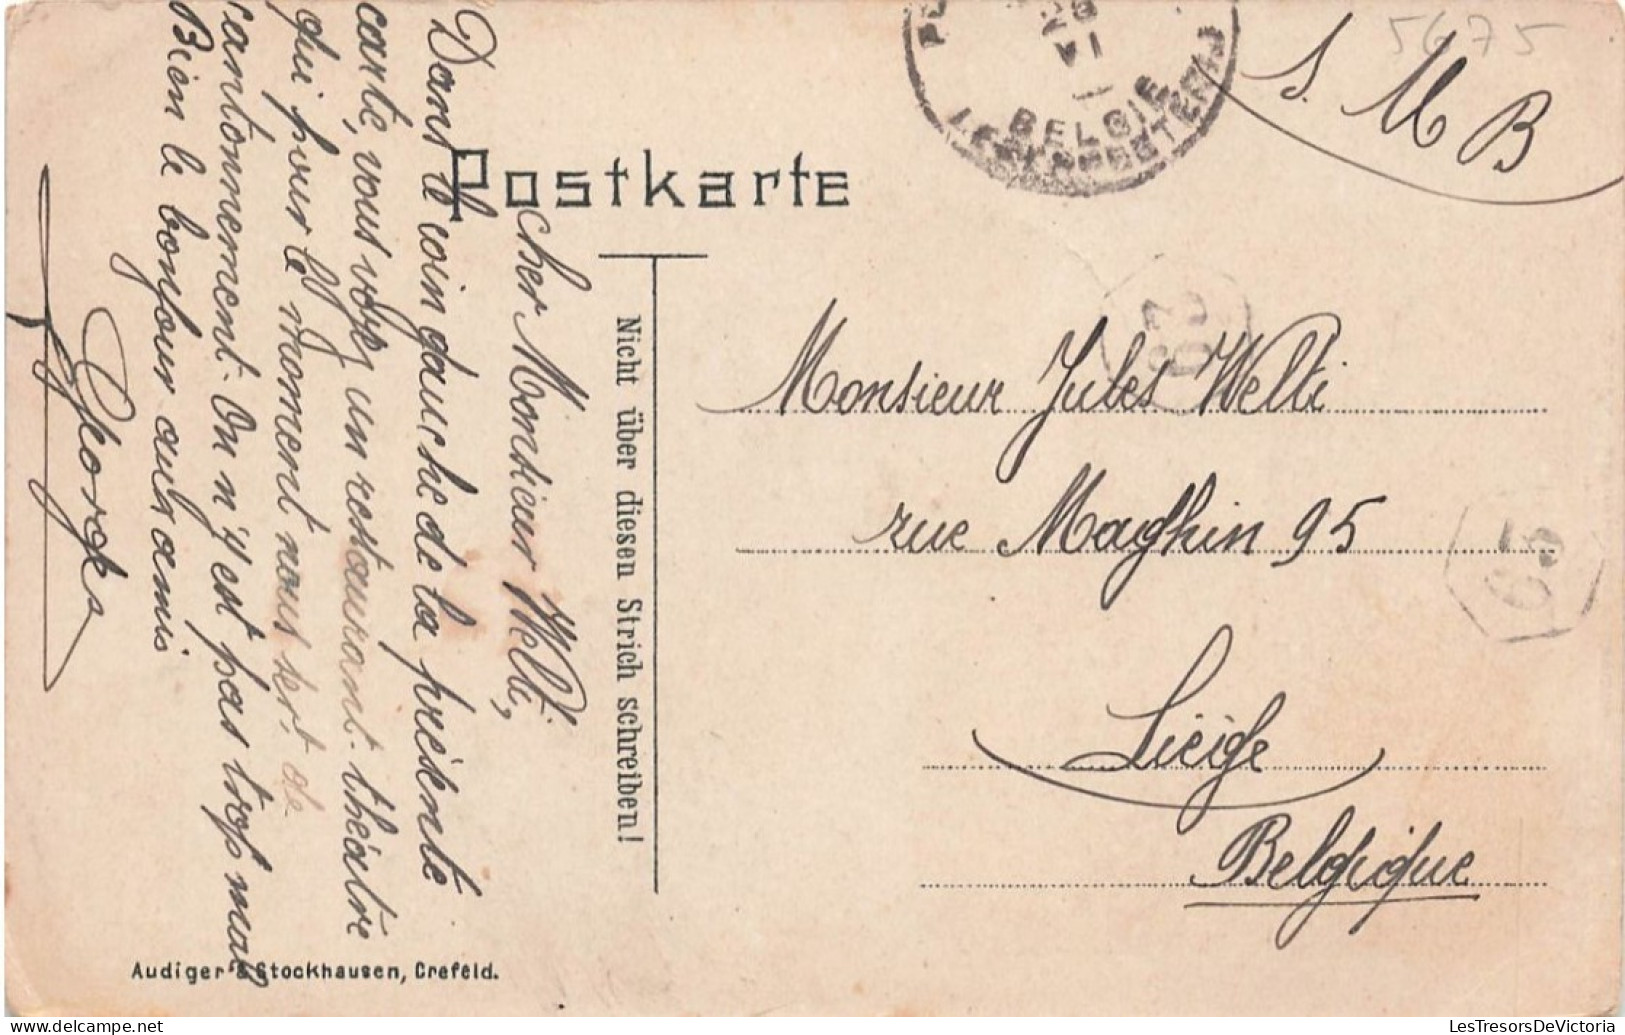 5675
S. M B
BELGIE
LEGERPOSTERIJ
Postkarte
Cher Monsieur Welti,
Dans le coin gauche de la présente
carte, vous voyez un restaurant-théâtre
qui pour le moment nous sert de
cantonnement. On n'y est pas trop mal
Bien le bonjour aux amis
Georges
Nicht über diesen Strich schreiben!
Monsieur Jules Welti
rue Maghin 95
Liége
Belgique
Audiger & Stockhausen, Crefeld.
www.delcampe.net
LesTresorsDeVictoria